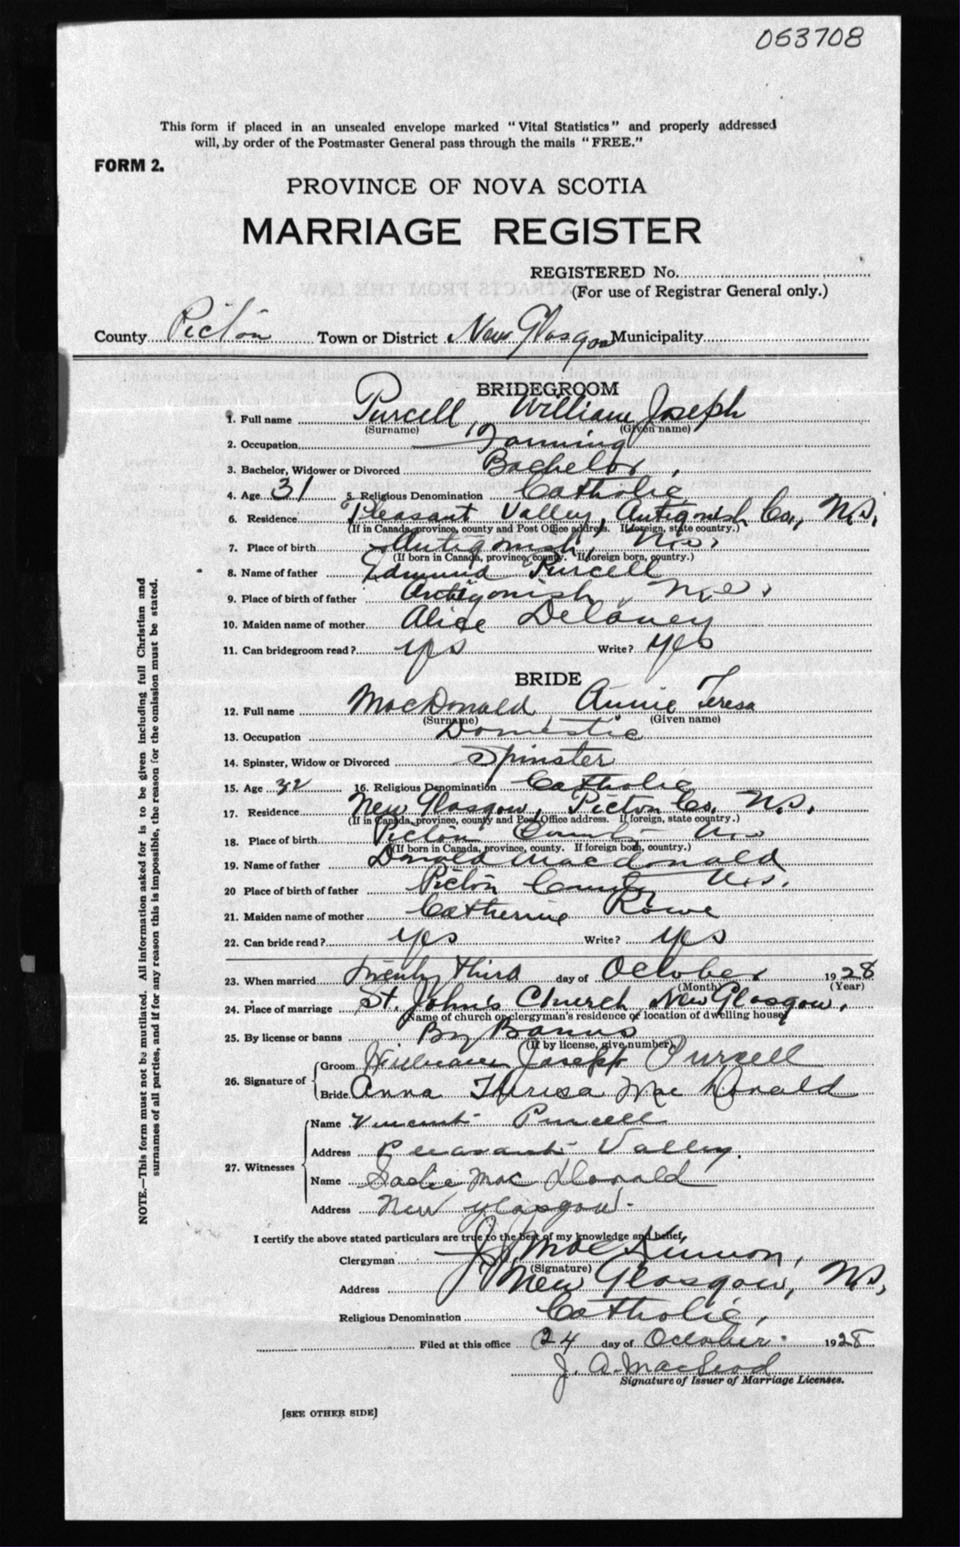 053708
This form if placed in an unsealed envelope marked "Vital Statistics" and properly addressed
will, by order of the Postmaster General pass through the mails "FREE."
FORM 2.
PROVINCE OF NOVA SCOTIA
MARRIAGE REGISTER
REGISTERED No.
(For use of Registrar General only.)
County Picton Town or District New Glasgow Municipality
BRIDEGROOM
1. Full name Purcell William Joseph
(Surname) (Given name)
2. Occupation Farming
3. Bachelor, Widower or Divorced Bachelor
4. Age 31 5. Religious Denomination Catholic
6. Residence Pleasant Valley, Antigonish Co., N.S.
(If in Canada, province, county and Post Office address. If foreign, state country.)
7. Place of birth Antigonish, N.S.
(If born in Canada, province, county. If foreign born, country.)
8. Name of father Edmund Purcell
9. Place of birth of father Antigonish, N.S.
10. Maiden name of mother Alice Delaney
11. Can bridegroom read? yes Write? yes
BRIDE
12. Full name MacDonald Annie Teresa
(Surname) (Given name)
13. Occupation Domestic
14. Spinster, Widow or Divorced Spinster
15. Age 32 16. Religious Denomination Catholic
17. Residence New Glasgow, Picton Co. N.S.
(If in Canada, province, county and Post Office address. If foreign, state country.)
18. Place of birth Picton County N.S.
(If born in Canada, province, county. If foreign born, country.)
19. Name of father Donald Macdonald
20 Place of birth of father Picton County N.S.
21. Maiden name of mother Catherine Rowe
22. Can bride read? yes Write? yes
23. When married twenty third day of October 1928
(Month) (Year)
24. Place of marriage St. John's Church, New Glasgow,
(Name of church or clergyman's residence or location of dwelling house)
25. By license or banns By Banns
(If by license, give number)
26. Signature of
Groom William Joseph Purcell
Bride Anna Theresa Mac Donald
27. Witnesses
Name Vincent Purcell
Address Pleasant Valley.
Name Sadie Mac Donald
Address New Glasgow.
I certify the above stated particulars are true to the best of my knowledge and belief,
Clergyman J. MacKinnon,
(Signature)
Address New Glasgow, N.S,
Religious Denomination Catholic,
Filed at this office 24 day of October 1928
J. A. MacLeod
Signature of Issuer of Marriage Licenses.
[SEE OTHER SIDE]
NOTE.—This form must not be mutilated. All information asked for is to be given including full Christian and
surnames of all parties, and if for any reason this is impossible, the reason for the omission must be stated.